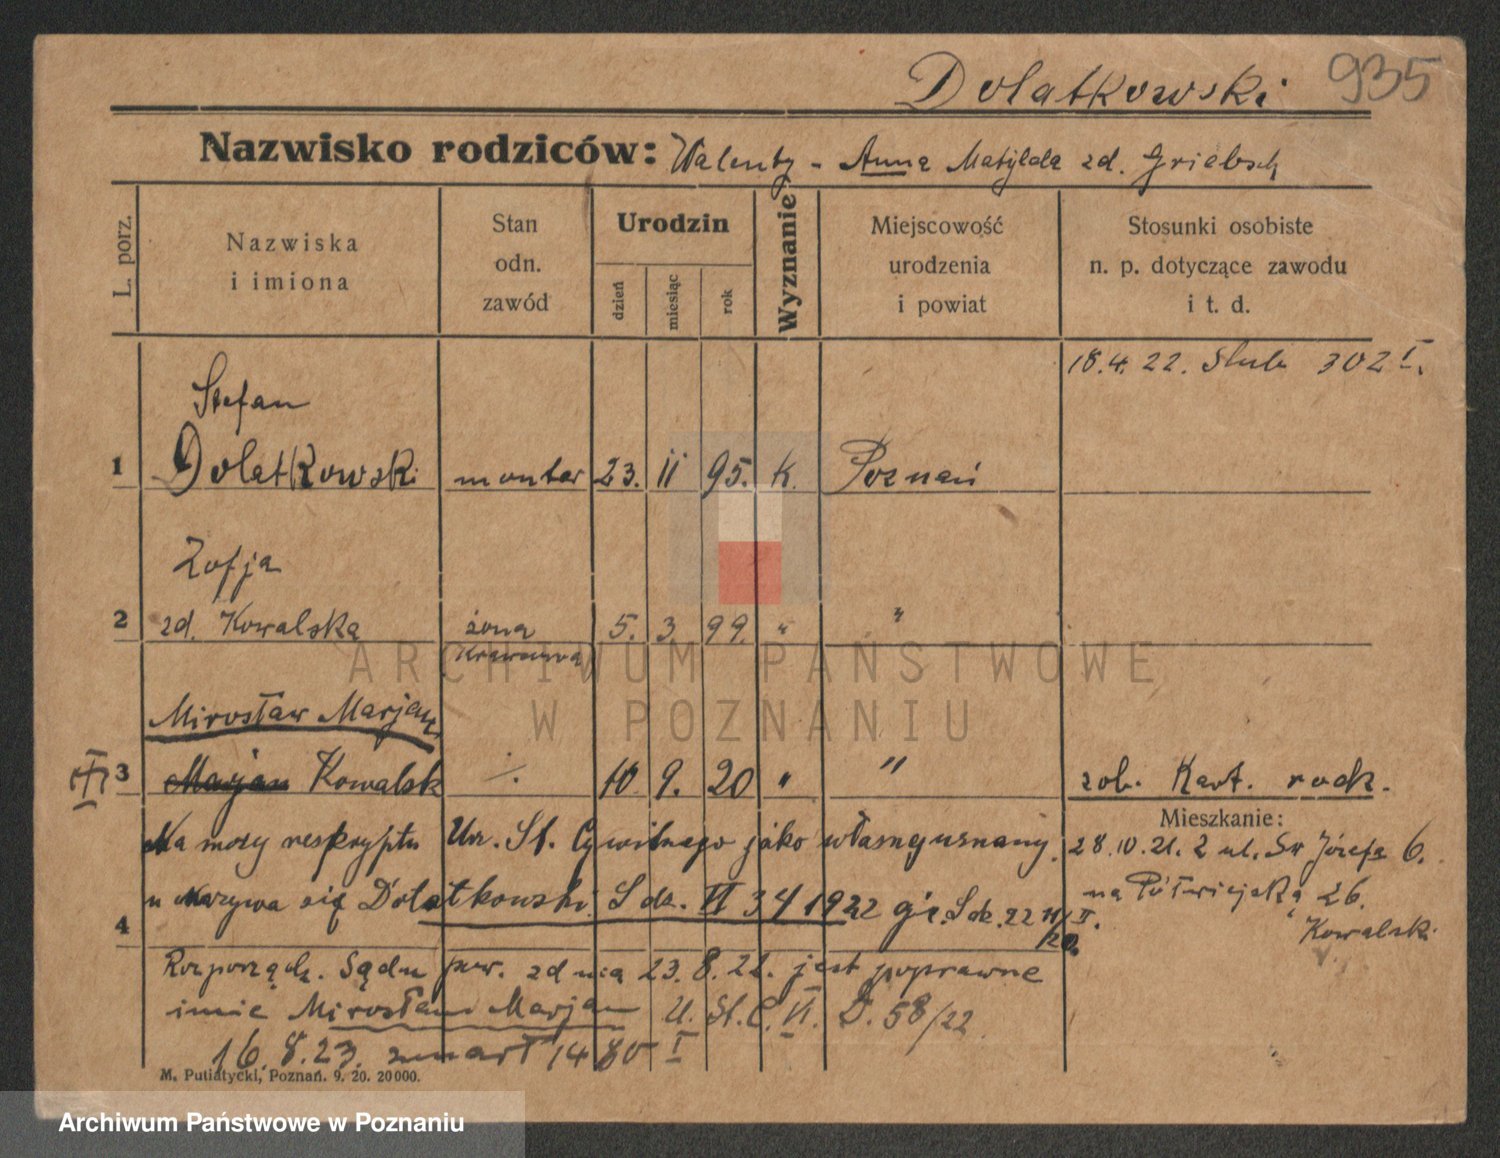 Dolatkowski 935
Nazwisko rodziców: Walenty - Anna Matylda zd. Griebsch
L. porz.
Nazwiska
i imiona
Stan
odn.
zawód
Urodzin
dzień
miesiąc
rok
Wyznanie
Miejscowość
urodzenia
i powiat
Stosunki osobiste
n. p. dotyczące zawodu
i t. d.
18.4.22. Slub 302 I.
Stefan
1 Dolatkowski monter 23. 11 95. K. Poznań
Zofja
2 zd. Kowalska żona 5. 3. 99. " "
Krawcowa
Mirosław Marjan
3 Marjan Kowalsk ./. 10. 9. 20 " " zob. Kart. rodz.
Mieszkanie:
Na mocy reskryptu Urz. St. Cywilnego jako własny uznany.
28.10.21. 2 ul. Św Józefa 6.
u nazywa się Dolatkowski Sdz. VI 34 1922
na Półwiejską 26.
Kowalski
4
Rozporządz. Sądu pow. z dnia 23.8.22. jest poprawne
imię Mirosław Marjan U. St. C. VI. D. 58/22
16.8.23. zmarł 1480 I
M. Putiatycki, Poznań. 9. 20. 20000.
ARCHIWUM PAŃSTWOWE
W POZNANIU
Archiwum Państwowe w Poznaniu